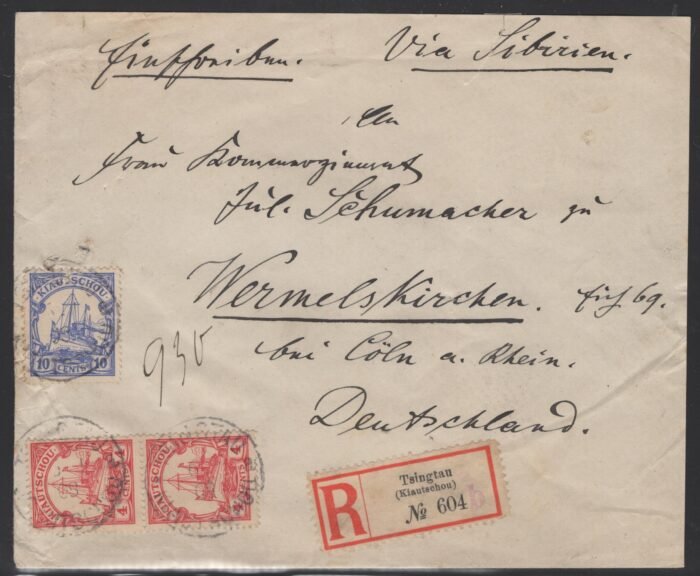 Einschreiben. Via Sibirien.
An
Frau Kommerzienrat
Jul. Schumacher zu
Wermelskirchen. 69.
bei Cöln a. Rhein.
Deutschland.
KIAUTSCHOU
10 CENTS 10
930
KIAUTSCHOU
4 CENTS 4
KIAUTSCHOU
4 CENTS 4
R
Tsingtau
(Kiautschou)
№ 604 b